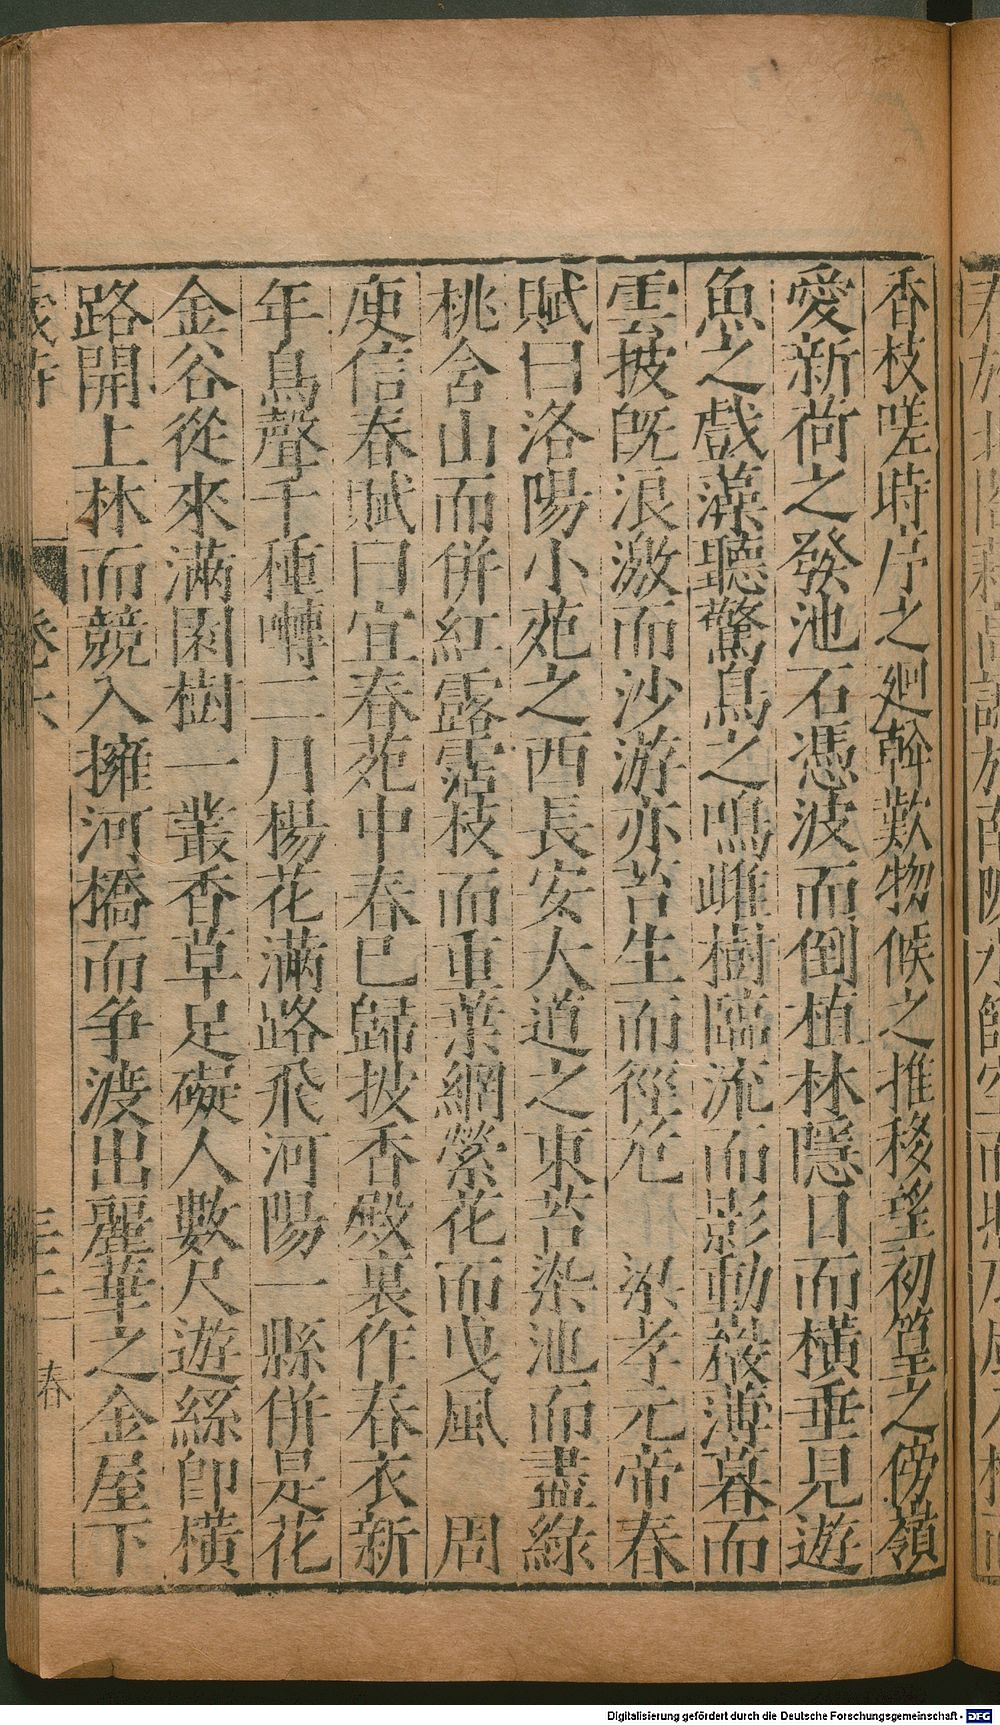 香枝嗟時序之廻斡歎物候之推移望初篁之傍嶺
愛新荷之發池石憑波而倒植林隱日而橫垂見遊
魚之戲藻聽驚鳥之鳴雌樹臨流而影動巖薄暮而
雲披旣浪激而沙游亦苔生而徑危　梁孝元帝春
賦曰洛陽小苑之西長安大道之東苔染池而盡綠
桃含山而併紅露霑枝而重葉網縈花而曵風　周
庾信春賦曰宜春苑中春已歸披香殿裏作春衣新
年鳥聲千種囀二月楊花滿路飛河陽一縣併是花
金谷從來滿園樹一叢香草足礙人數尺遊絲卽橫
路開上林而競入擁河橋而爭渡出麗華之金屋下
歲時　卷六　三十二　春
Digitalisierung gefördert durch die Deutsche Forschungsgemeinschaft - DFG